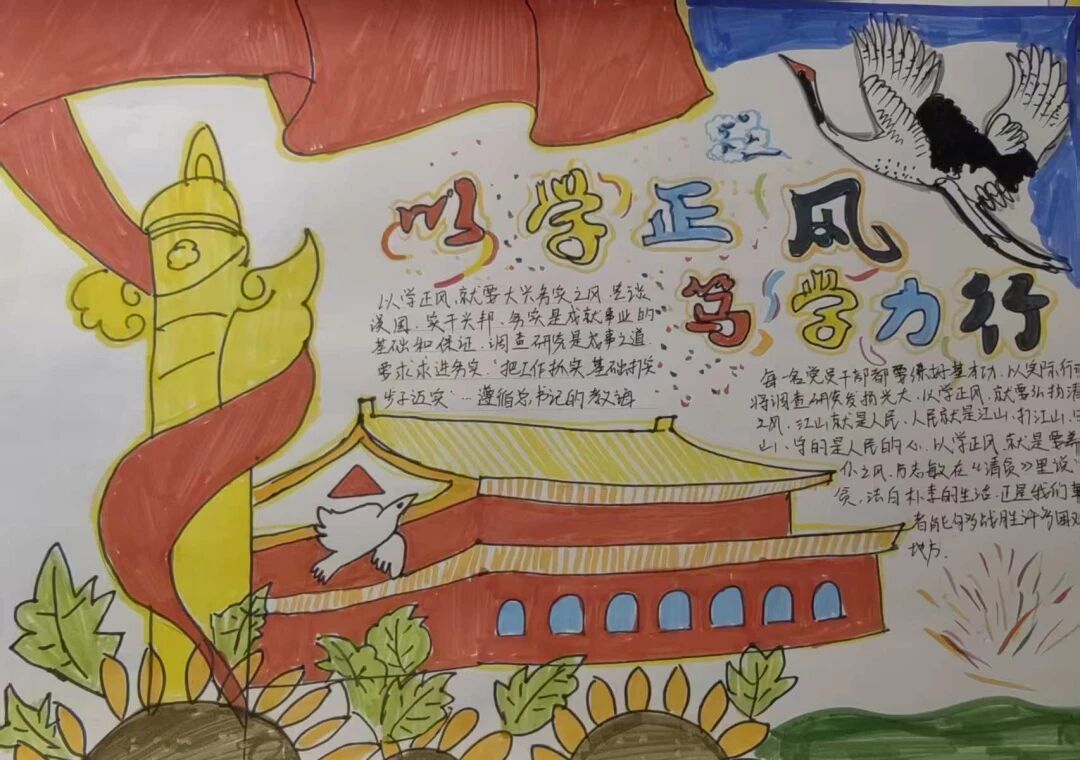 以学正风
笃学力行
以学正风,就要大兴务实之风,空谈
误国,实干兴邦,务实是成就事业的
基础和保证,调查研究是成事之道.
要求求进务实."把工作抓实基础打实
步子迈实"…遵循总书记的教诲
每一名党员干部都要练好基本功,以实际行
将调查研究发扬光大,以学正风,就要弘扬清
之风,江山就是人民,人民就是江山,打江山,
山,守的是人民的心,以学正风,就是要养
之风,方志敏在《清贫》里说
贫,洁白朴素的生活,正是我们革
者能够战胜许多困难
地方.